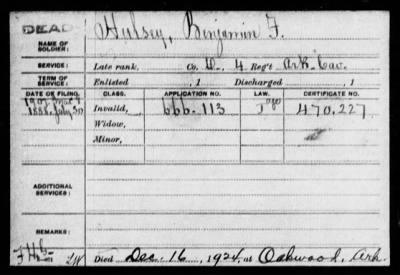 DEAD
NAME OF SOLDIER: Hulsey, Benjamin F.
SERVICE: Late rank, Co. D, 4 Reg't Ark. Cav.
TERM OF SERVICE: Enlisted , 1 Discharged , 1
DATE OF FILING. CLASS. APPLICATION NO. LAW. CERTIFICATE NO.
1888. July 30 Invalid, 666.113 470.227
Widow,
Minor,
ADDITIONAL SERVICES:
REMARKS:
Died Dec. 16, 1924, at Oakwood, Ark.